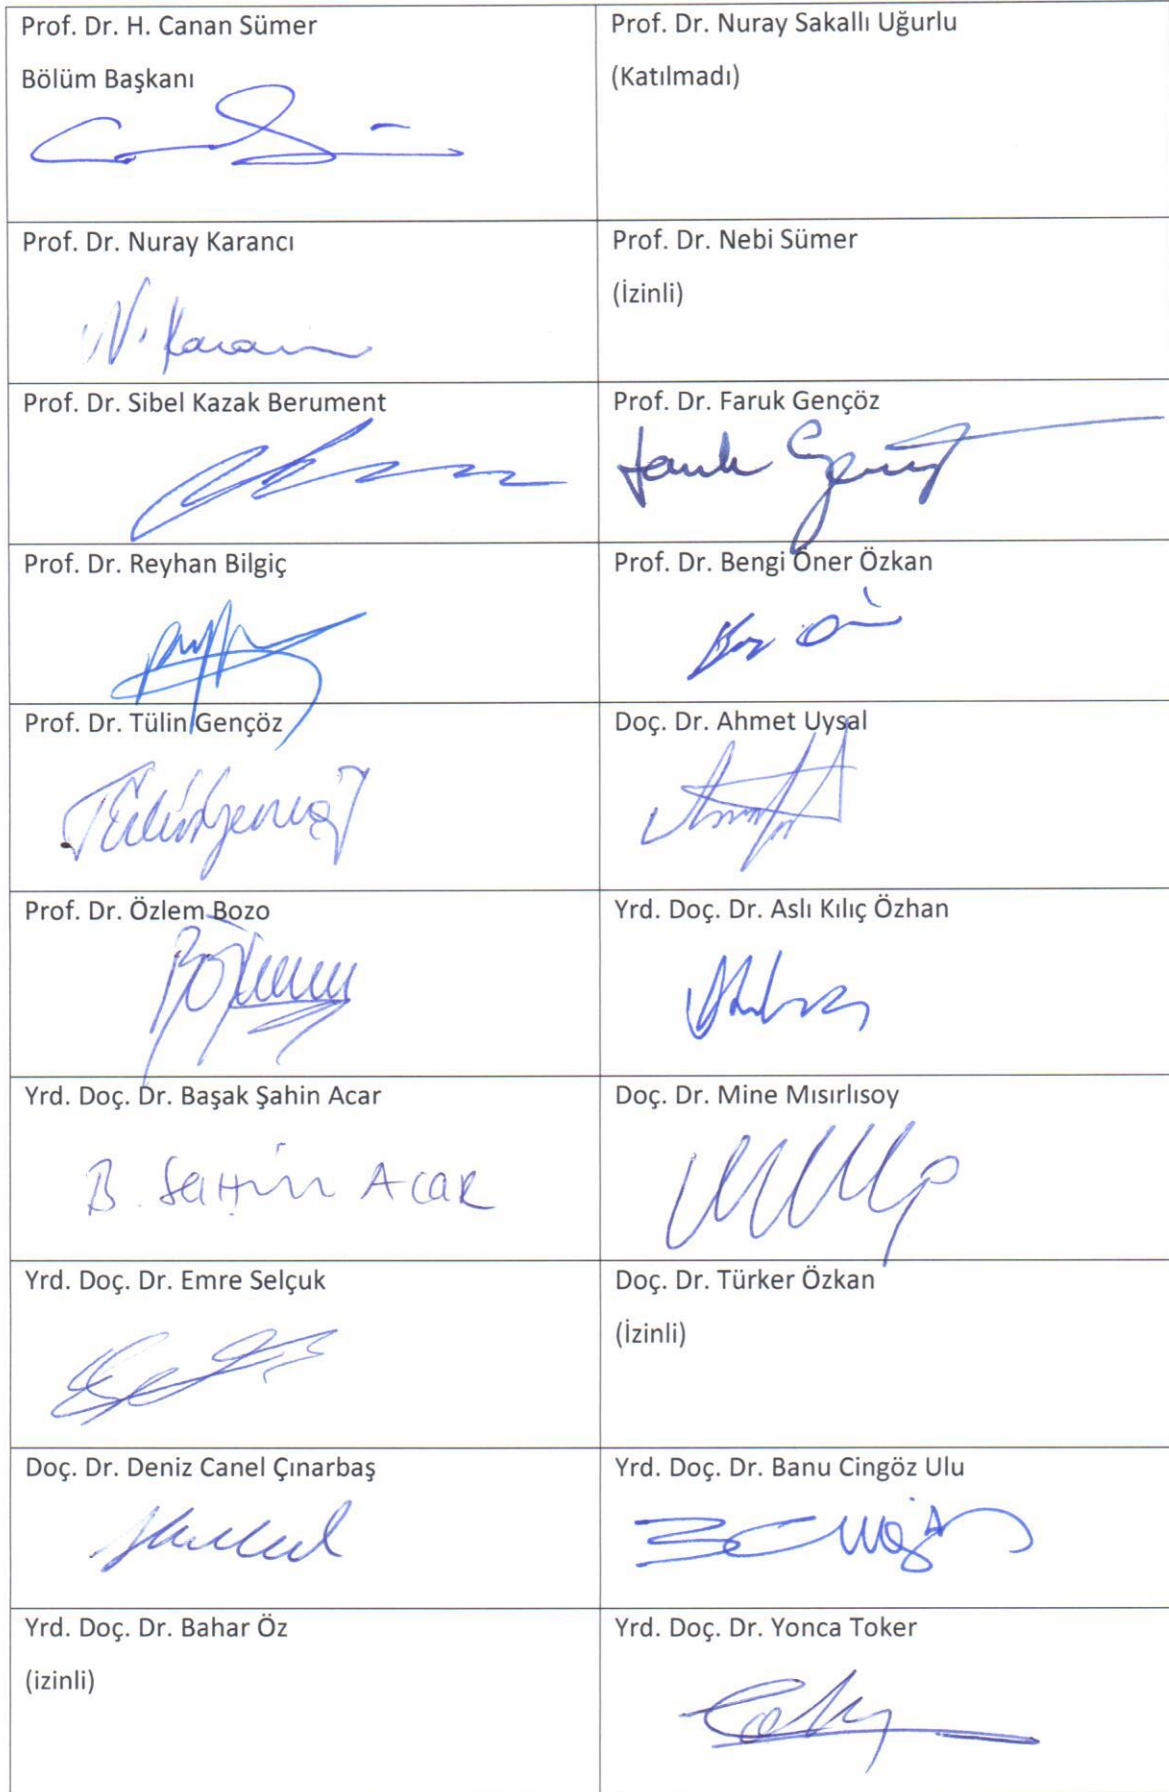 Prof. Dr. H. Canan Sümer
Bölüm Başkanı
Prof. Dr. Nuray Sakallı Uğurlu
(Katılmadı)
Prof. Dr. Nuray Karancı
N. Karancı
Prof. Dr. Nebi Sümer
(İzinli)
Prof. Dr. Sibel Kazak Berument
Prof. Dr. Faruk Gençöz
Prof. Dr. Reyhan Bilgiç
Prof. Dr. Bengi Öner Özkan
Prof. Dr. Tülin Gençöz
Doç. Dr. Ahmet Uysal
Prof. Dr. Özlem Bozo
Yrd. Doç. Dr. Aslı Kılıç Özhan
Yrd. Doç. Dr. Başak Şahin Acar
B. Şahin Acar
Doç. Dr. Mine Mısırlısoy
Yrd. Doç. Dr. Emre Selçuk
Doç. Dr. Türker Özkan
(İzinli)
Doç. Dr. Deniz Canel Çınarbaş
Yrd. Doç. Dr. Banu Cingöz Ulu
Yrd. Doç. Dr. Bahar Öz
(izinli)
Yrd. Doç. Dr. Yonca Toker